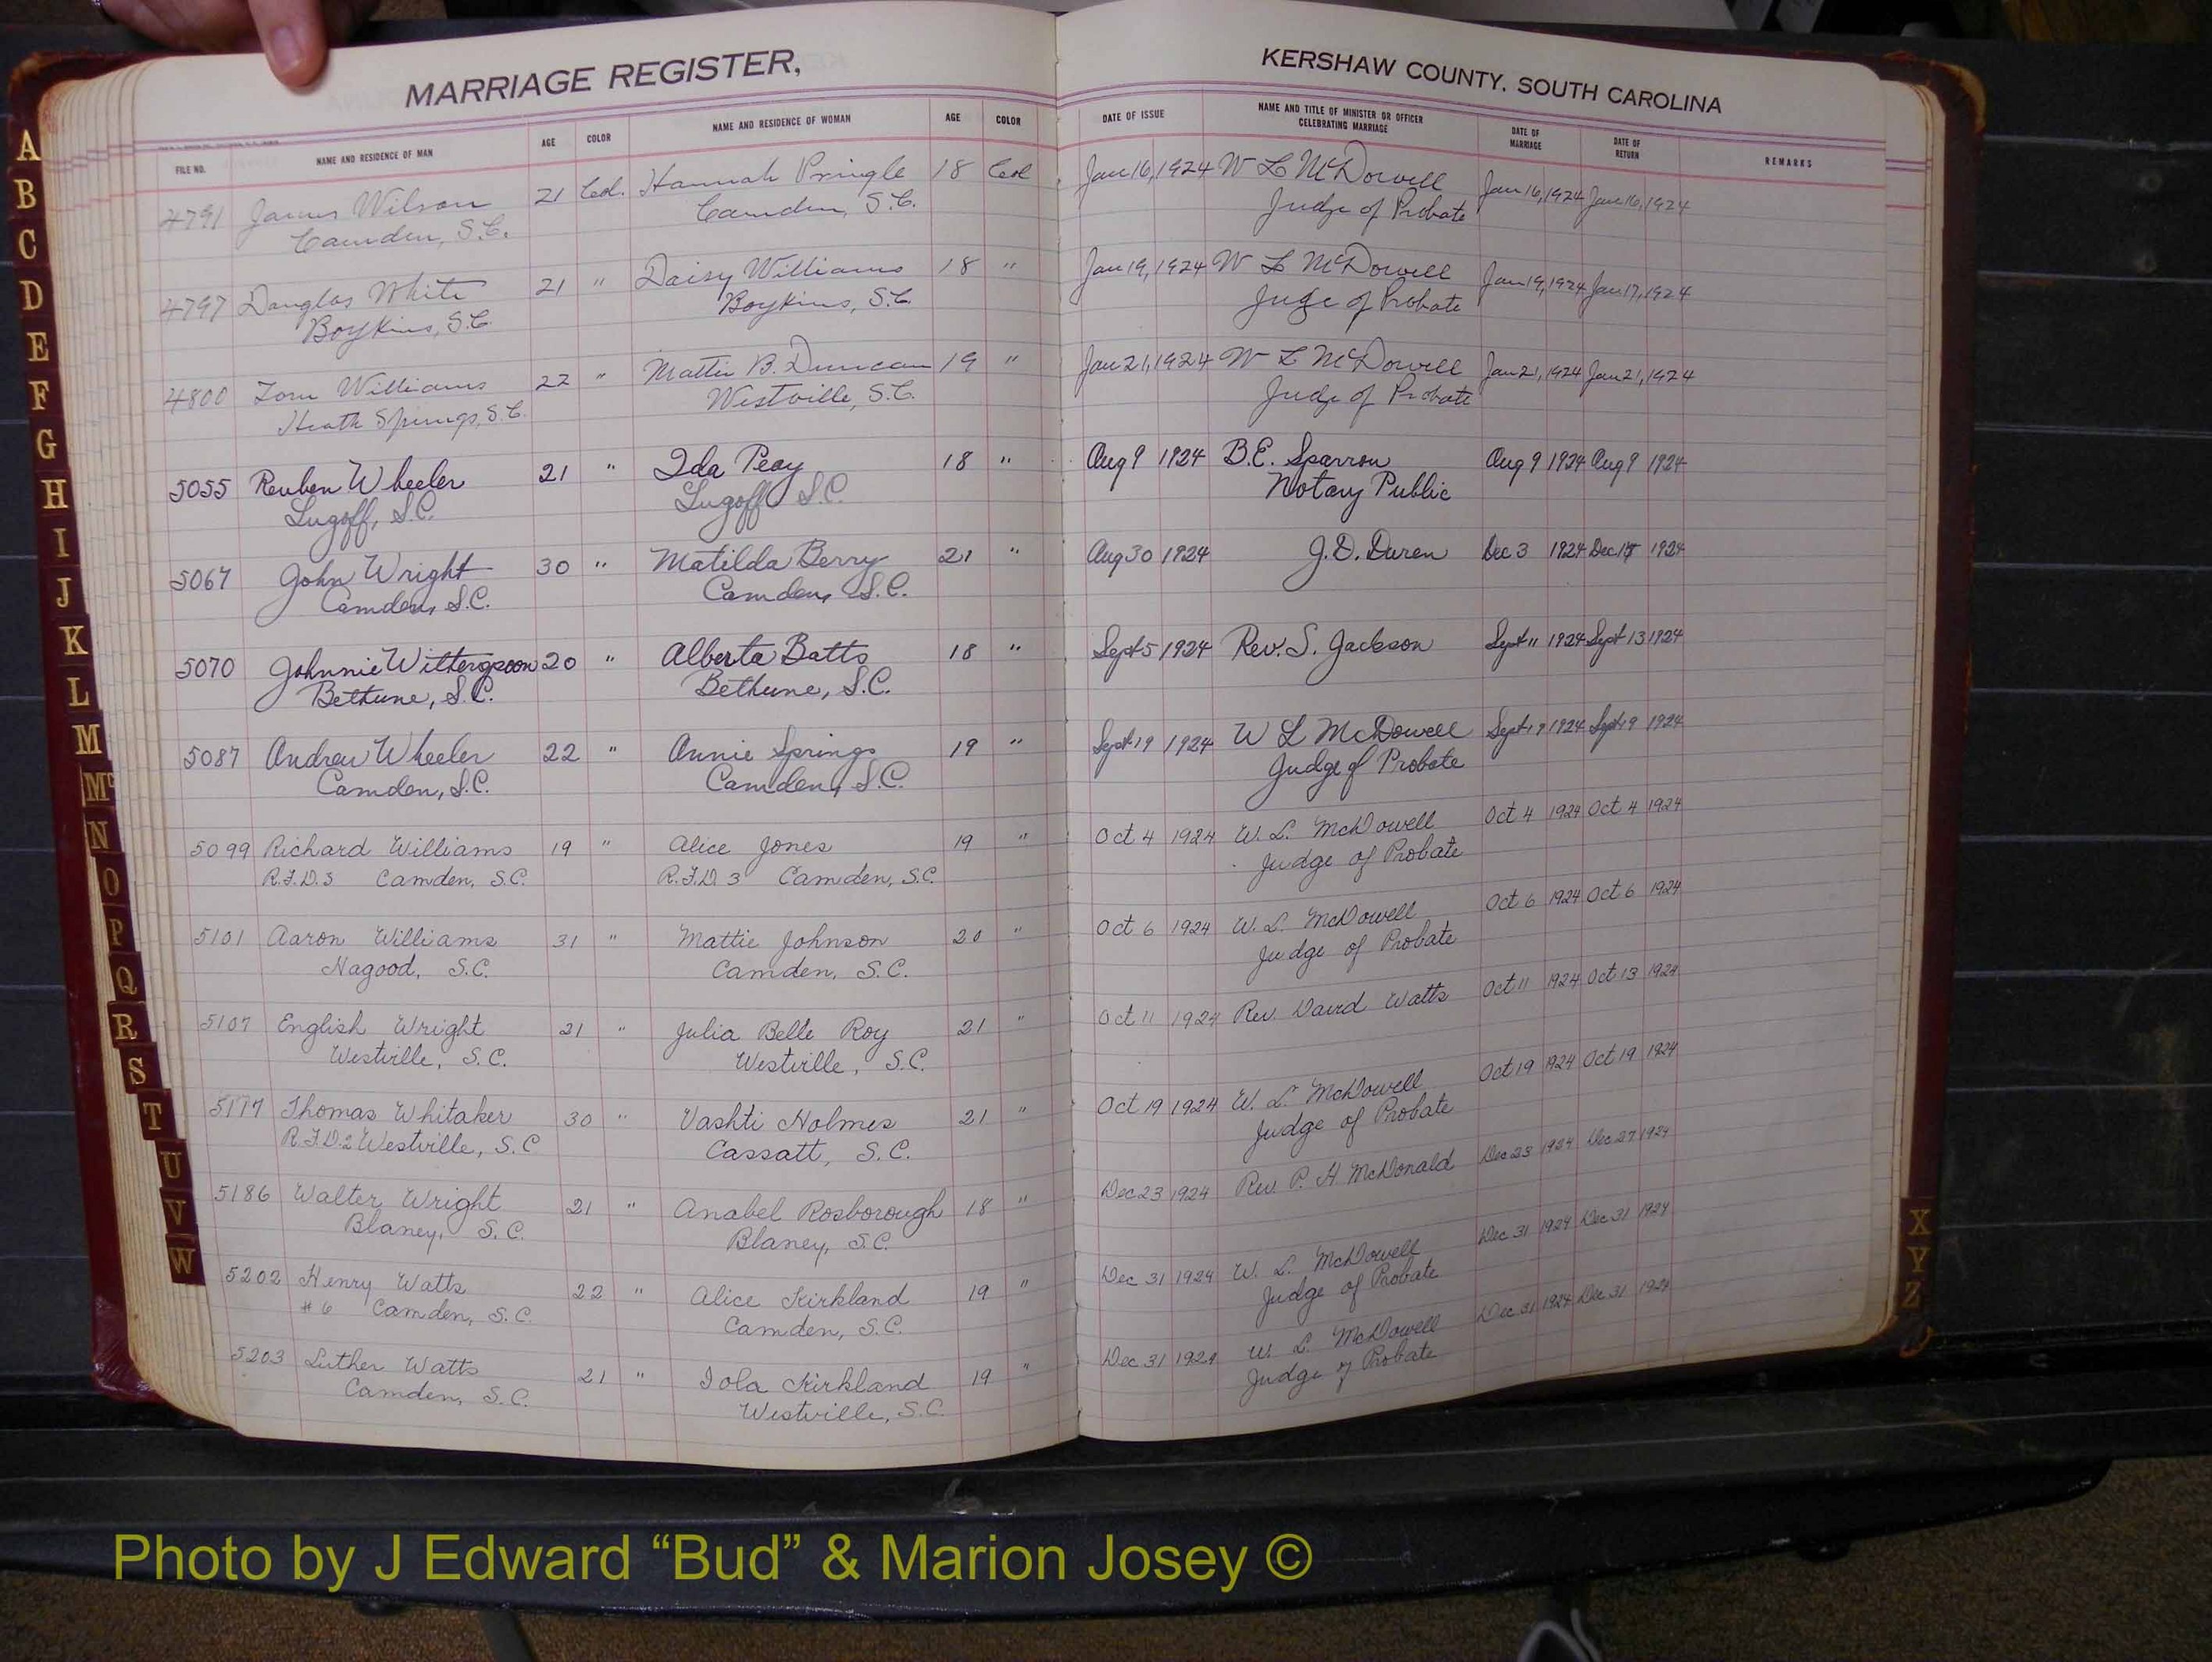 MARRIAGE REGISTER,
KERSHAW COUNTY, SOUTH CAROLINA
FILE NO. NAME AND RESIDENCE OF MAN AGE COLOR NAME AND RESIDENCE OF WOMAN AGE COLOR DATE OF ISSUE NAME AND TITLE OF MINISTER OR OFFICER CELEBRATING MARRIAGE DATE OF MARRIAGE DATE OF RETURN REMARKS
4791 James Wilson 21 Col. Hannah Pringle 18 Col Jan 16, 1924 W L McDowell Jan 16, 1924 Jan 16, 1924
Camden, S.C. Camden, S.C. Judge of Probate
4797 Douglas White 21 " Daisy Williams 18 " Jan 19, 1924 W L McDowell Jan 19, 1924 Jan 17, 1924
Boykins, S.C. Boykins, S.C. Juge of Probate
4800 Tom Williams 22 " Mattie B. Duncan 19 " Jan 21, 1924 W L McDowell Jan 21, 1924 Jan 21, 1924
Heath Springs, S.C. Westville, S.C. Judge of Probate
5055 Reuben Wheeler 21 " Ida Peay 18 " Aug 9 1924 B.E. Sparrow Aug 9 1924 Aug 9 1924
Lugoff, S.C. Lugoff S.C. Notary Public
5067 John Wright 30 " Matilda Berry 21 " Aug 30 1924 J.D. Duren Dec 3 1924 Dec 1924
Camden, S.C. Camden, S.C.
5070 Johnnie Withergpoon 20 " Alberta Batts 18 " Sept 5 1924 Rev. S. Jackson Sept 11 1924 Sept 13 1924
Bethune, S.C. Bethune, S.C.
5087 Andrew Wheeler 22 " Annie Springs 19 " Sept 19 1924 W L McDowell Sept 19 1924 Sept 19 1924
Camden, S.C. Camden, S.C. Judge of Probate
5099 Richard Williams 19 " Alice Jones 19 " Oct 4 1924 W. L. McDowell Oct 4 1924 Oct 4 1924
R.F.D. 3 Camden, S.C. R.F.D. 3 Camden, S.C. Judge of Probate
5101 Aaron Williams 31 " Mattie Johnson 20 " Oct 6 1924 W. L. McDowell Oct 6 1924 Oct 6 1924
Hagood, S.C. Camden, S.C. Judge of Probate
5107 English Wright 21 " Julia Belle Roy 21 " Oct 11 1924 Rev. David Watts Oct 11 1924 Oct 13 1924
Westville, S.C. Westville, S.C.
5117 Thomas Whitaker 30 " Vashti Holmes 21 " Oct 19 1924 W. L. McDowell Oct 19 1924 Oct 19 1924
R.F.D. 2 Westville, S.C Cassatt, S.C. Judge of Probate
5186 Walter Wright 21 " Anabel Rosborough 18 " Dec 23 1924 Rev. P. H McDonald Dec 23 1924 Dec 27 1924
Blaney, S.C. Blaney, S.C.
5202 Henry Watts 22 " Alice Kirkland 19 " Dec 31 1924 W. L. McDowell Dec 31 1924 Dec 31 1924
# 6 Camden, S.C. Camden, S.C. Judge of Probate
5203 Luther Watts 21 " Iola Kirkland 19 " Dec 31 1924 W. L. McDowell Dec 31 1924 Dec 31 1924
Camden, S.C. Westville, S.C. Judge of Probate
A
B
C
D
E
F
G
H
I
J
K
L
M
Mc
N
O
P
Q
R
S
T
U
V
W
X
Y
Z
Photo by J Edward “Bud” & Marion Josey ©